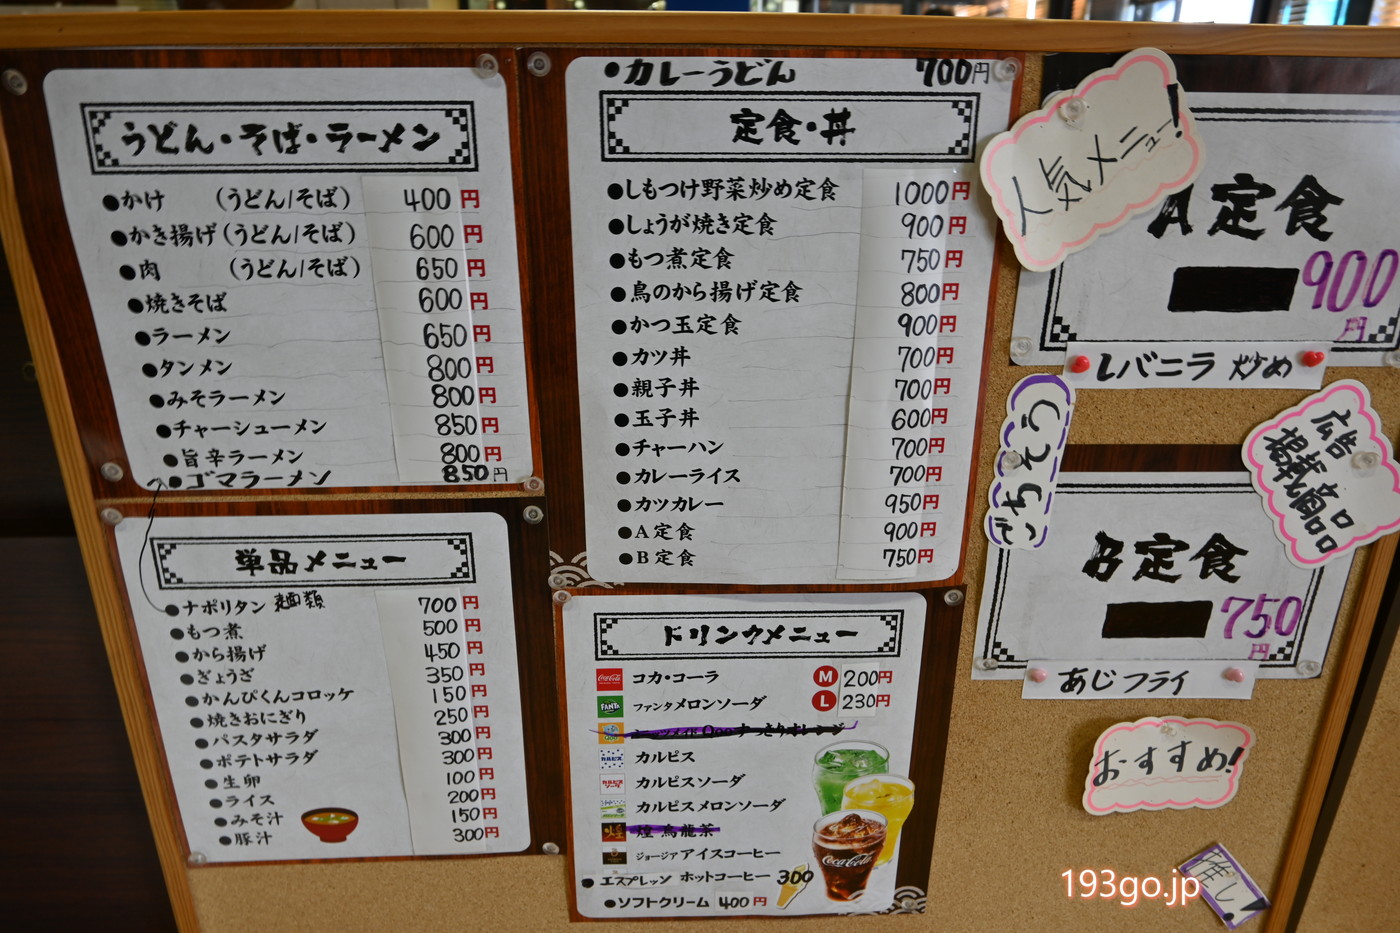 うどん・そば・ラーメン
●かけ (うどん/そば) 400円
●かき揚げ(うどん/そば) 600円
●肉 (うどん/そば) 650円
●焼きそば 600円
●ラーメン 650円
●タンメン 800円
●みそラーメン 800円
●チャーシューメン 850円
●旨辛ラーメン 800円
●ゴマラーメン 850円
単品メニュー
●ナポリタン 麺類 700円
●もつ煮 500円
●から揚げ 450円
●ぎょうざ 350円
●かんぴくんコロッケ 150円
●焼きおにぎり 250円
●パスタサラダ 300円
●ポテトサラダ 300円
●生卵 100円
●ライス 200円
●みそ汁 150円
●豚汁 300円
●カレーうどん 700円
定食・丼
●しもつけ野菜炒め定食 1000円
●しょうが焼き定食 900円
●もつ煮定食 750円
●鳥のから揚げ定食 800円
●かつ玉定食 900円
●カツ丼 700円
●親子丼 700円
●玉子丼 600円
●チャーハン 700円
●カレーライス 700円
●カツカレー 950円
●A定食 900円
●B定食 750円
ドリンクメニュー
コカ・コーラ M 200円
ファンタメロンソーダ L 230円
Qooすっきりオレンジ
カルピス
カルピスソーダ
カルピスメロンソーダ
煌 烏龍茶
ジョージアアイスコーヒー
●エスプレッソ ホットコーヒー 300
●ソフトクリーム 400円
Coca-Cola
人気メニュー!
A定食
900円
レバニラ炒め
広告掲載商品
B定食
750円
あじフライ
おすすめ!
推し!
193go.jp